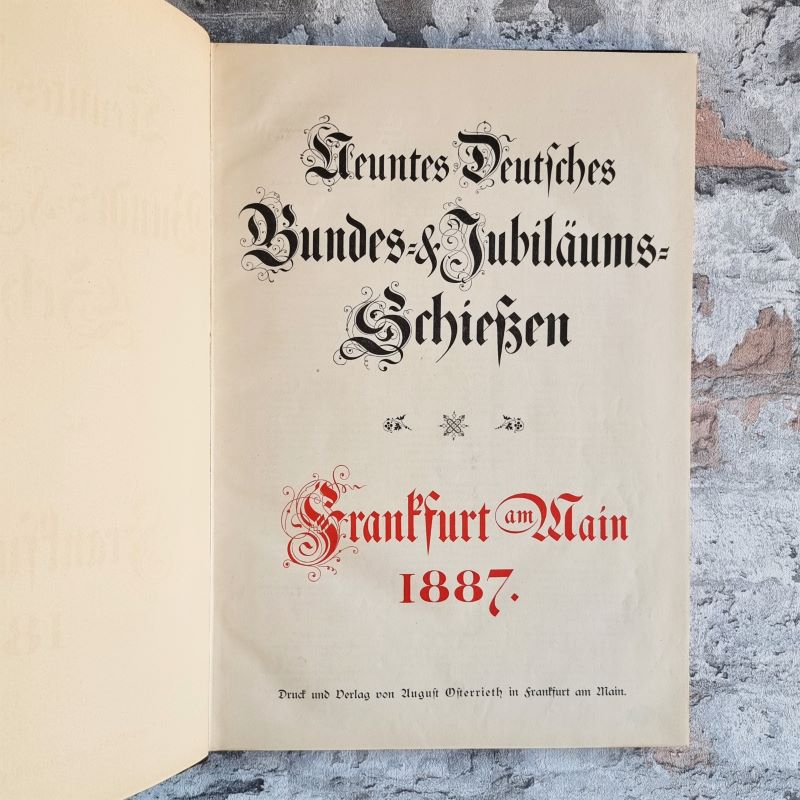 Neuntes Deutſches
Bundes-& Jubiläums-
Schießen
Frankfurt am Main
1887.
Druck und Verlag von Auguſt Oſterrieth in Frankfurt am Main.